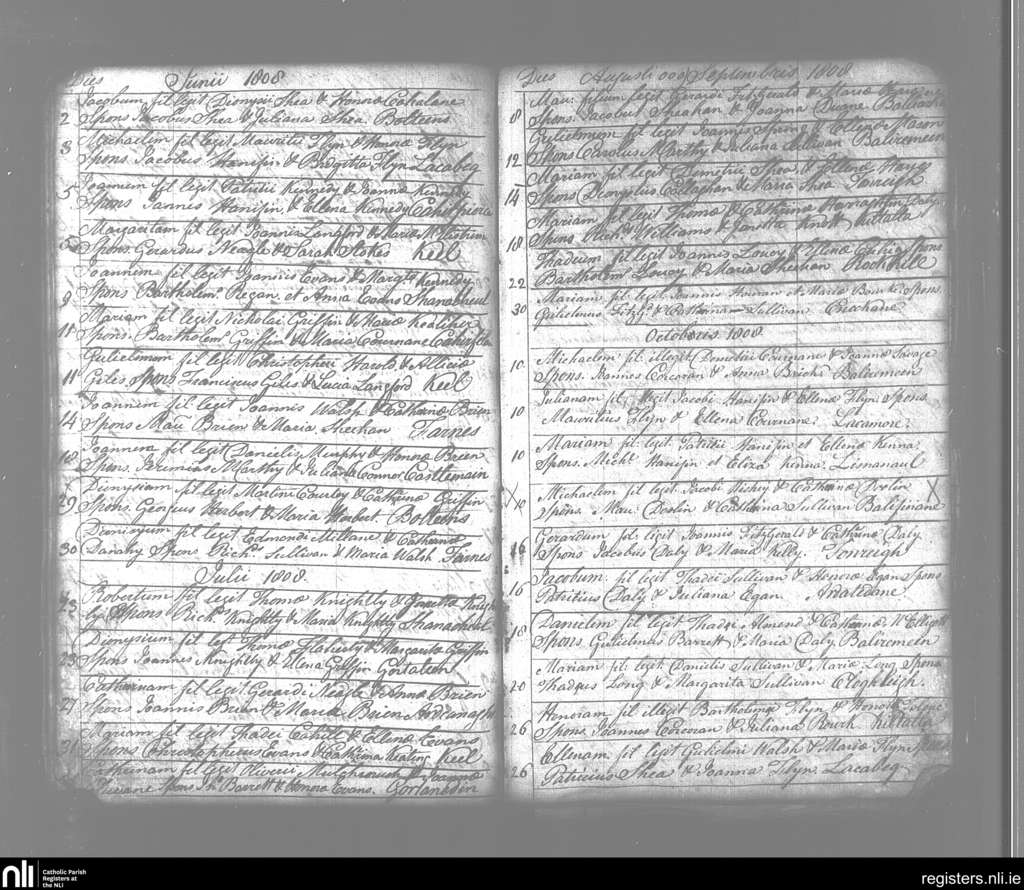 Dies Junii 1808
Jacobum fil legit Dionysii Shea & Honoræ Cahalane
2 Spons Jacobus Shea & Juliana Shea. Bolteens
Michaelem fil legit Mauritii Flyn & Honoræ Flyn
3 Spons Jacobus Hanifin & Brigitta Flyn Lacabeg
Joannem fil legit Patritii Kennedy & Joannæ Kennedy
5 Spons Joannis Hanifin & Ellena Kennedy
Margaritam fil legit Joannis Langford & Mariæ
Spons Gerardus Neagle & Sarah Stokes Keel
Joannem fil legit Joannis Evans & Margtæ Kennedy
9 Spons Bartholemw Regan et Anna Evans Shanacheul
Mariam fil legit Nicholai Griffin & Mariæ
11 Spons Bartholemw Griffin & Maria Cournane
Gulielmum fil legit Christopheri Harold & Allicia
11 Giles, Spons Franciscus Giles & Lucia Langford Keel
Joannem fil legit Joannis Walsh & Catharinæ Brien
14 Spons Mau: Brien & Maria Sheehan Farnes
Joannem fil legit Danielis Murphy & Honoræ Breen
18 Spons Jeremias McArthy & Juliana Connor Castlemain
Dionysium fil legit Martini Courtoy & Catharinæ Griffin
29 Spons Georgius Herbert & Maria Herbert. Bolteens
Dionisium fil legit Edmondi Millane & Catharinæ
30 Danahy Spons Richd Sullivan & Maria Walsh Farnes
Julii 1808
Robertum fil legit Thomæ Knightly & Jonettæ Knight
23 by Spons Richd Knightly & Maria Knightly Shanacheul
Dionysium fil legt Thomæ Flaherty & Margaritæ Griffin
25 Spons Joannes Knightly & Elena Griffin Gortaleen
Catharinam fil legit Gerardi Neagle & Annæ Brien
27 Spons Joannis Brien & Maria Brien
Mariam fil legit Thadei Cahill & Ellenæ Evans
31 Spons Christopherus Evans & Catharina Keating Keel
Catherinam fil legit Oliverii & Joannæ
Spons Barrett & Honora Evans. Gortaneden
Dies Augusti 000 Septembris 1808
Mau: filium legit Gerardi Fitzgerald & Mariæ
8 Spons. Jacobus Sheahan & Joanna Duane
Gulielmum fil legit Joannis Spring & Ellenæ Mason
12 Spons Carolus McArthy & Juliana Sullivan Baliremeen
Mariam fil legit Demetrii Shea & Ellenæ Hayes
14 Spons Dionysius Callaghan & Maria Shea
Mariam fil legit Thomæ & Catharinæ
18 Spons Richd Williams & Jonetta Knott
Thadeum fil legit Joannis Loucy & Ellenæ Spons
22 Bartholemw Loucy & Maria Sheehan
Mariam fil legit Joannis & Mariæ Spons.
30 Gulielmus Fitzgd & Catharina Sullivan
Octobris 1808
10 Michaelem fil: illegit Demetrii Cournane & Joannæ Savage
Spons. Joannes Corcoran & Anna Bricks Baliremeen
Julianam fil: legit Jacobi Hanifin & Ellenæ Flyn Spons
10 Mauritius Flyn & Ellena Cournane. Lacamore.
Mariam fil: legit. Patritii Hanifin et Ellenæ Kenna.
10 Spons. Michl Hanifin et Eliza Kenna. Limanaul
Michaelem fil legit Jacobi Hickey & Catharinæ Doslin
X 10 Spons. Mau: Doslin & Catharina Sullivan X
Gerardum fil: legit Joannis Fitzgerald & Catharinæ Daly
16 Spons Jacobus Daly & Maria Kelly.
Jacobum fil legit Thadei Sullivan & Honoræ Egan Spons
16 Patritius Daly & Juliana Egan.
Danielem fil legit Thadei & Catharinæ McElligott
18 Spons Gulielmus Barrett & Maria Daly. Baliremeen
Mariam fil: legit: Danielis Sullivan & Mariæ Long Spons
20 Thadeus Long & Margarita Sullivan
Honoram fil illegit Bartholomei Flyn & Honoræ
26 Spons. Joannes Corcoran & Juliana Rourk
Ellenam fil legit Gulielmi Walsh & Mariæ Flyn Spons
26 Patricius Shea & Joanna Flyn. Lacabeg
nli Catholic Parish
Registers at
the NLI
registers.nli.ie